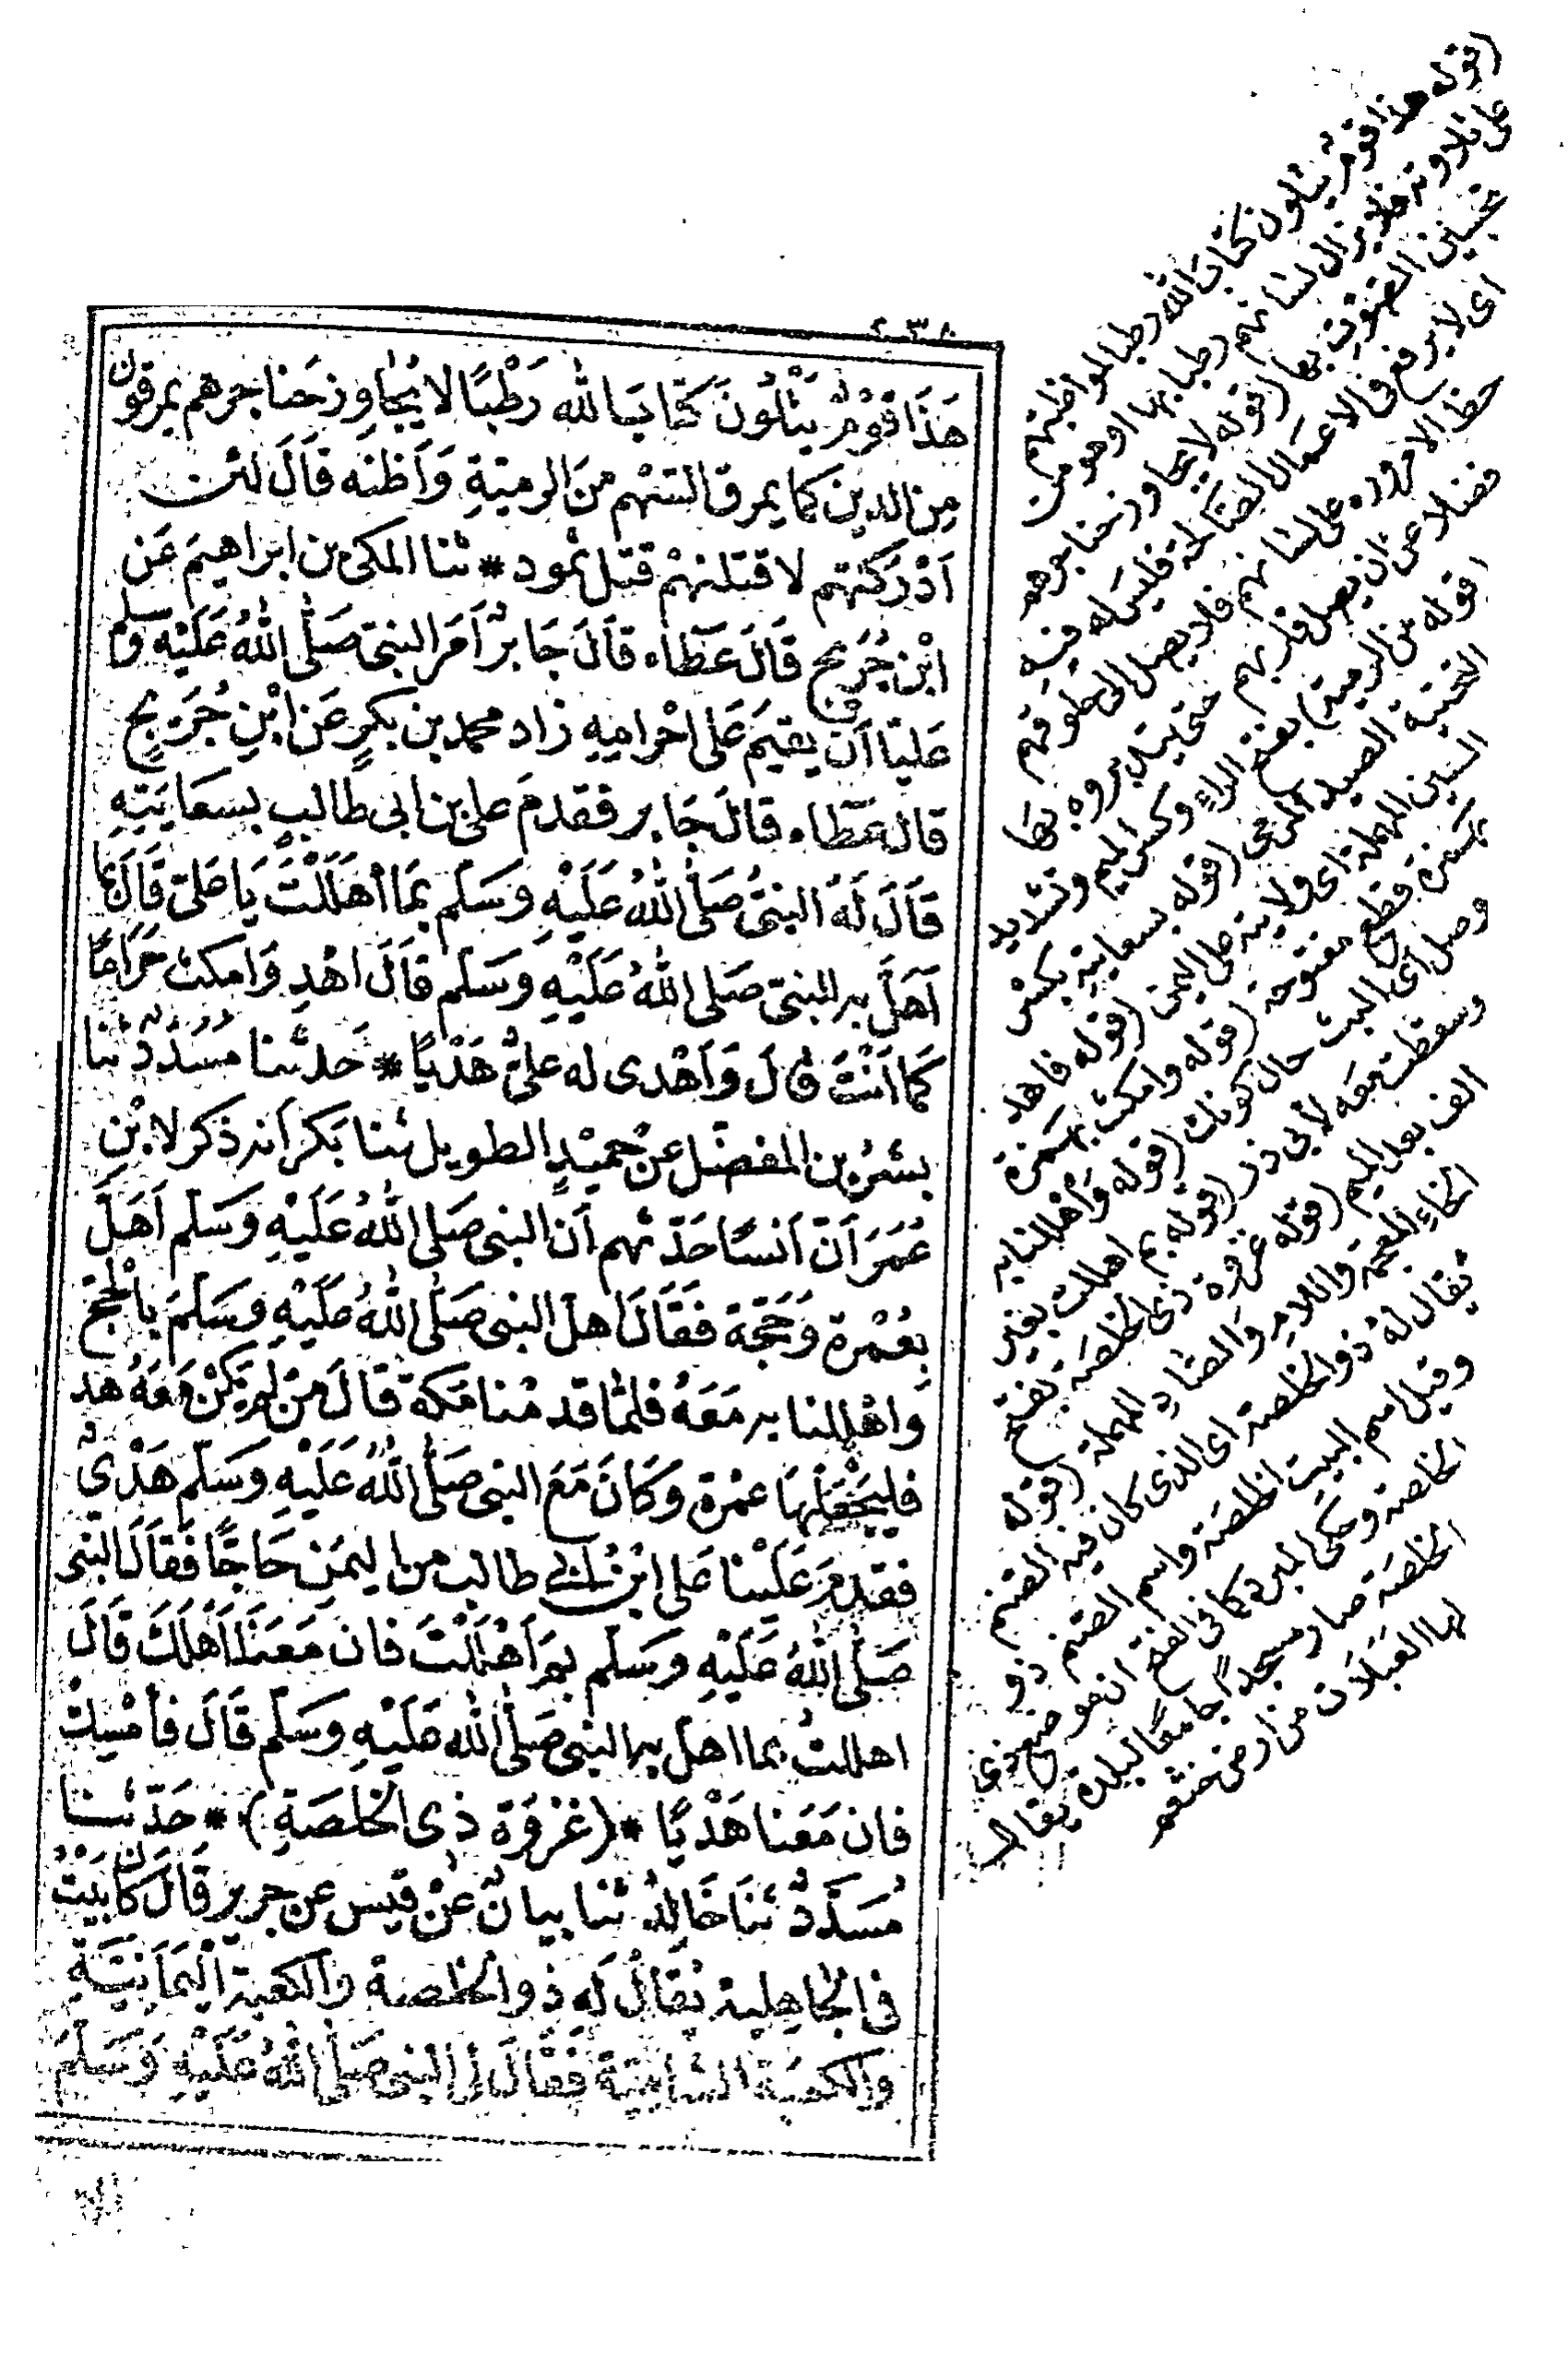 ٢٣٨
هَذَا قَوْمٌ يَتْلُونَ كتَابَ الله رَطْبًا لا يُجَاوِز حَنَاجرَهم يمرقون
مِنَ الدين كما يمرق السَّهْم مِنَ الرميَّةِ وَأَظنه قَالَ لئن
أَدْرَكْتهم لاقتلنهُمْ قتلَ ثمود * ثنا المكى بن ابرَاهيمَ عَن
ابْن جُرَيج قَالَ عَطَاء قَالَ جَابرٌ أمَرَ النبىّ صَلَّى اللهُ عَلَيْه وسلم
عَليًّا أن يقيمَ عَلى احْرامِهِ زاد محمد بن بكرٍ عَن ابْنِ جُرَيجٍ
قال عَطَاء قالَ جَابر فقدمَ على بن ابى طالبٍ بسعَايَتِهِ
قَالَ لَهُ النبىُّ صَلَّى اللهُ عَلَيْهِ وسَلّم بمَا أَهْلَلْتَ يَا عَلىّ قَالَ بما
أَهَلَّ به النبىّ صَلى اللهُ عَلَيْهِ وَسَلم قَالَ اهْدِ وَامكث حَرَامًا
كَمَا أَنْتَ قالَ وَأهْدى له علىٌّ هَدْيًا * حَدثنا مُسَدَّدٌ ثنا
بشرُ بن المفضّل عن حُمَيْدٍ الطويل ثنا بَكرٌ أنه ذكر لابْنِ
عُمَرَ أنّ أنسًا حَدّثهم أن النبى صَلى اللهُ عَلَيْهِ وَسَلم أهَلَّ
بعُمْرة وَحَجّة فَقَالَ اهلّ النبى صَلَّى اللهُ عَلَيْهِ وسَلمَ بالْحَجّ
وَاهْللنا به مَعَهُ فلمّا قدمْنا مَكة قالَ مَنْ لم يَكنْ مَعَهُ هَدْى
فليَجْعَلْهَا عمْرة وَكَانَ مَعَ النبى صَلَّى اللهُ عَلَيْهِ وَسَلّم هَدْىٌ
فقدمَ عَلَيْنا عَلى ابْن أبى طالب من اليمَنِ حَاجًّا فَقَالَ النبى
صَلَّى اللهُ عَلَيْهِ وَسَلم بمَ أهْلَلْتَ فان مَعَنَا أهْلَكَ قَالَ
اهللتُ بما اهلّ به النبى صَلَّى الله عَلَيْهِ وسَلم قَالَ فأمْسِكْ
فان مَعَنا هَدْيًا * (غزْوَة ذى الخلصَةِ) * حَدّثنا
مُسَدَّدٌ ثنَا خَالِدٌ ثنا بيانٌ عنْ قيس عن جرير قَالَ كانَ بَيْتٌ
فى الجَاهِلية يُقَالُ لَه ذو الخلصة والكعبة اليَمَانِيَّةِ
والكعبَة الشاميّة فَقَالَ لى النبى صَلَّى اللهُ عَلَيْهِ وَسَلّمَ
(قوله هذا قوم يتلون كتاب الله رطبا لمواظبتهم
على تلاوته فلا يزال لسانهم رطبا بها او هو من
تحسين الصوت بها (قوله لا يجاوز حناجرهم
اى لا يرفع فى الاعمال الصالحة فليس له فيه
حظ الا مروره على لسانهم فلا يصل الى حلوقهم
فضلا عن ان يصل قلوبهم حتى يتدبروه بها
(قوله من الرمية) بفتح الراء وكسر الميم وتشديد
التحتية الصيد المرمى (قوله بسعايته بكسر
السين المهملة اى ولايته على اليمن (قوله فاهد
بهمزة قطع مفتوحة (قوله وامكث بهمزة
وصل اى البث حال كونك (قوله وأهللنا به
وسقطت معه لأبى ذر (قوله بم اهللت بغير
الف بعد الميم (قوله غزوة ذى الخلصة بفتح
الخاء المعجمة واللام والصاد المهملة (قوله
يقال له ذو الخلصة اى الذى كان فيه الصنم
وقيل اسم البيت الخلصة واسم الصنم ذو
الخلصة وحكى المبرد كما فى الفتح ان موضع ذى
الخلصة صار مسجدا جامعا لبلدة يقال
لها العبلات من ارض خثعم